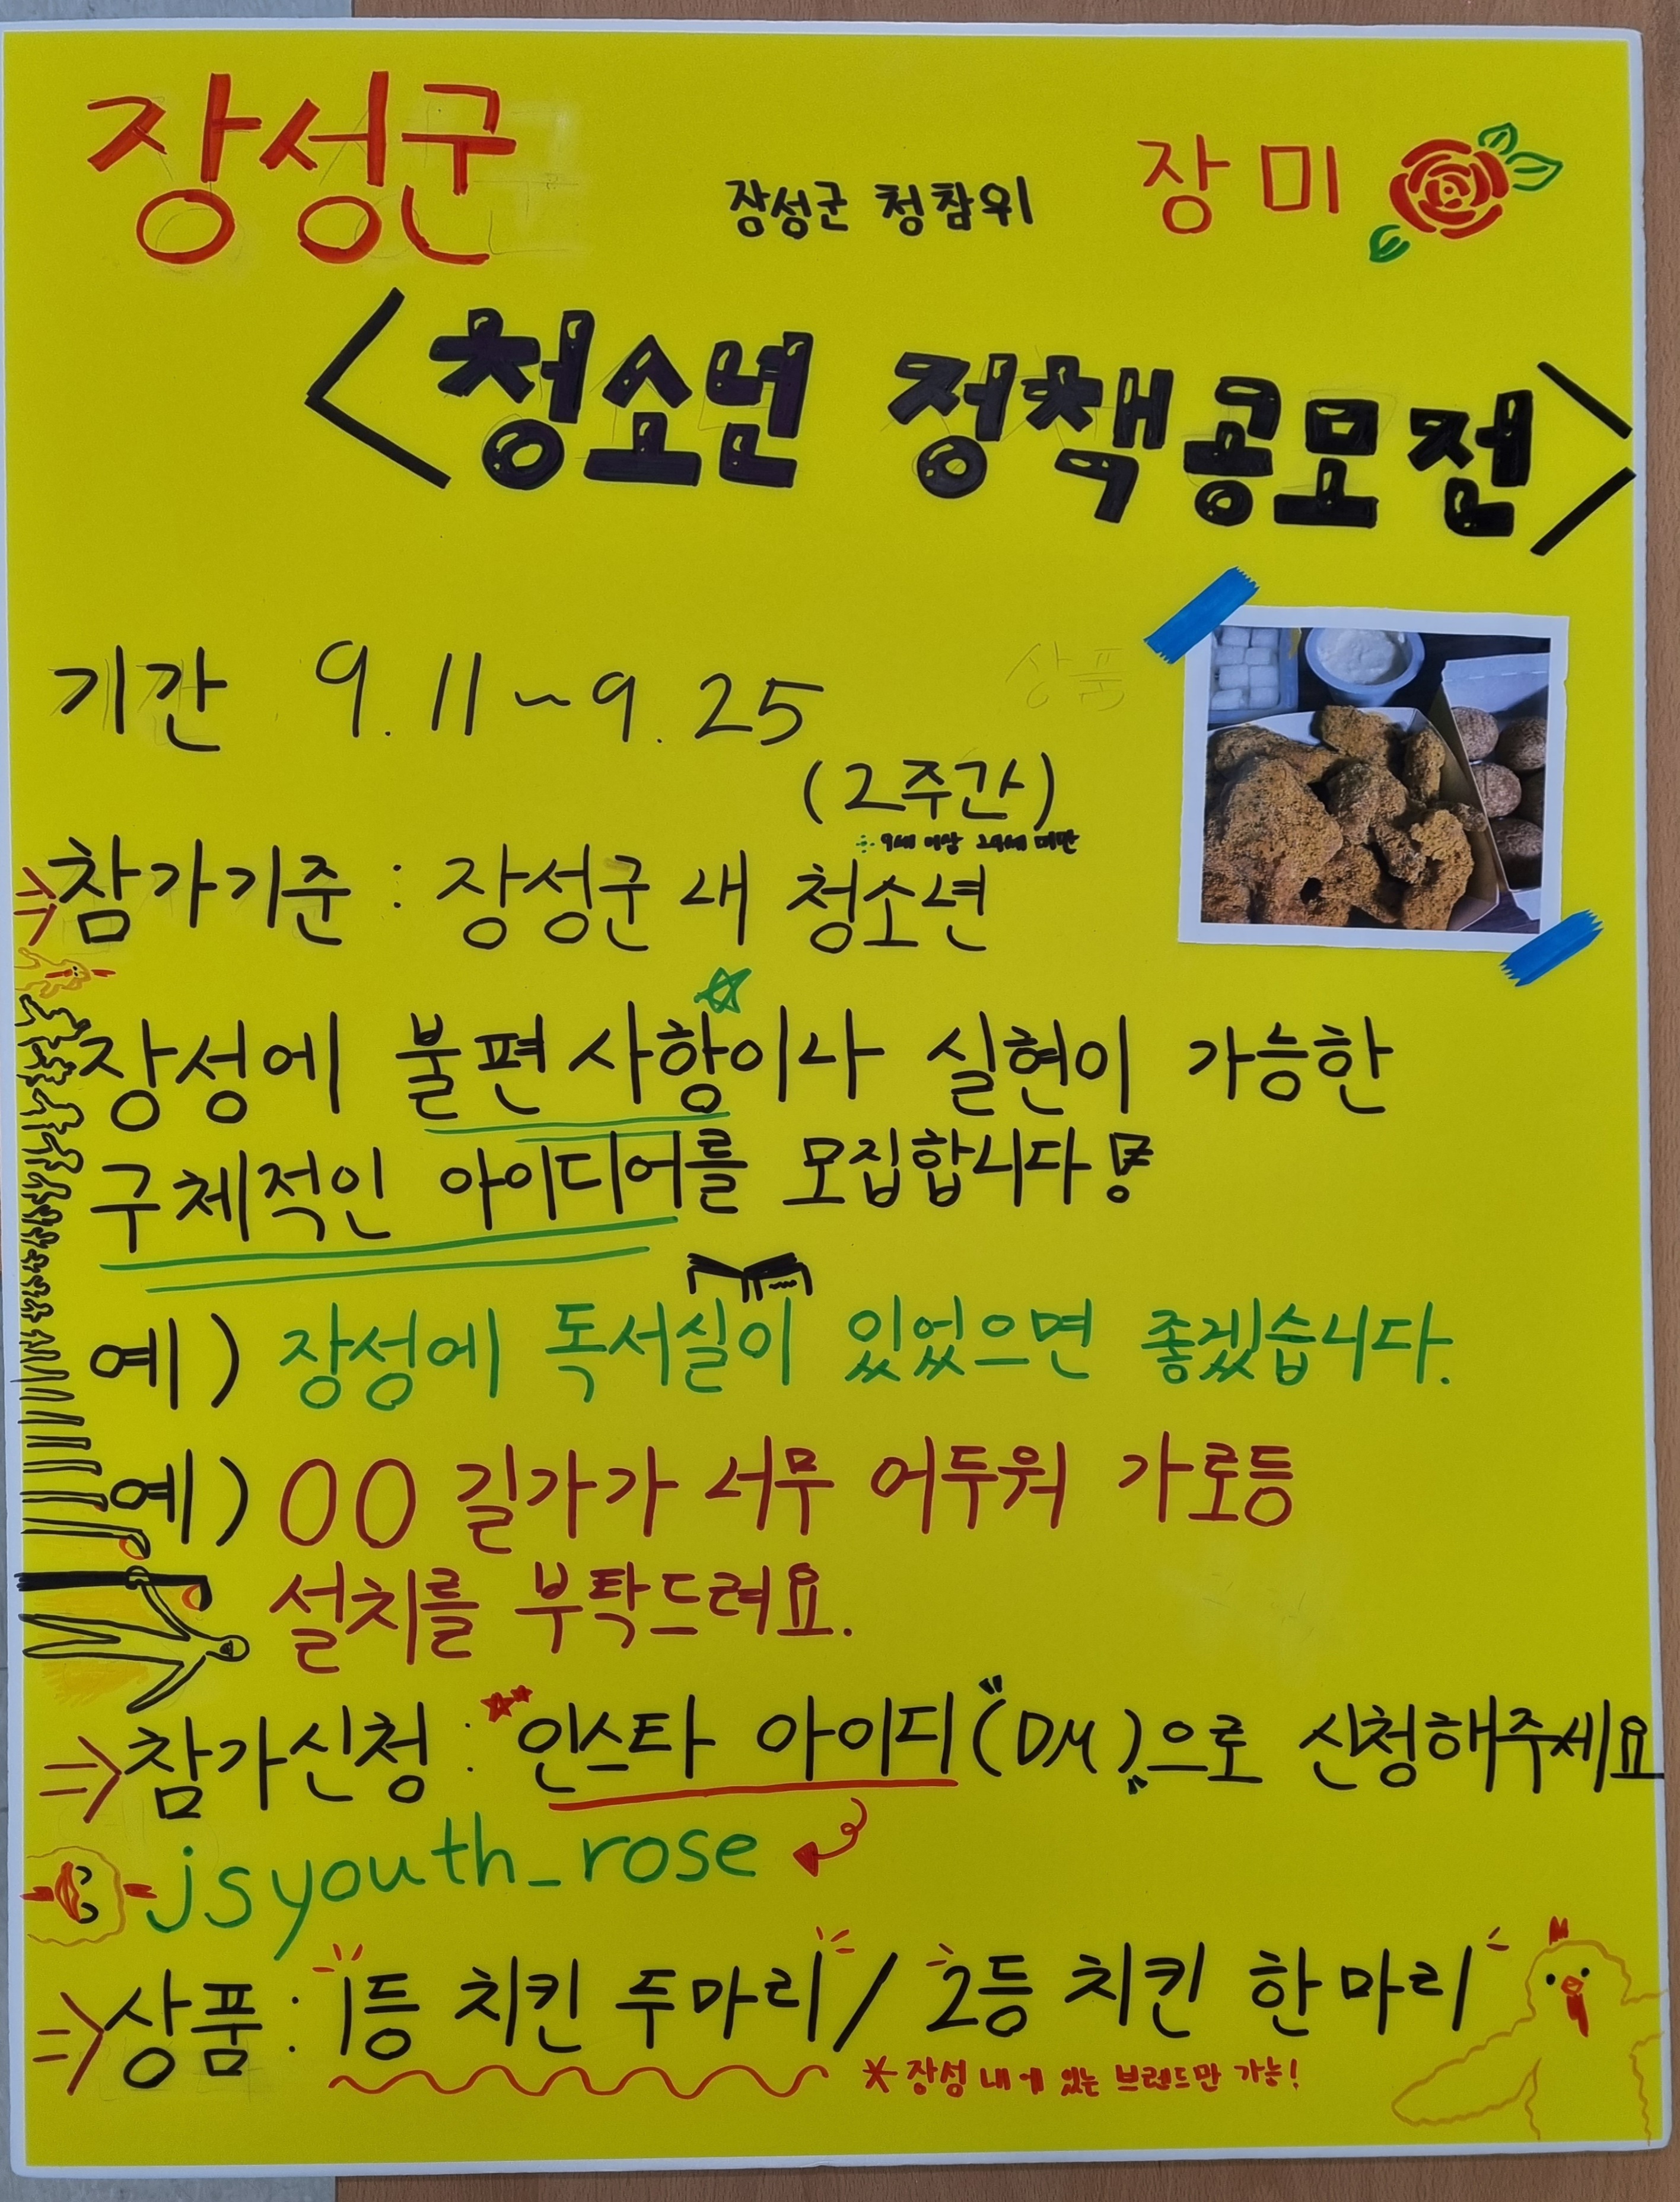 장성군
장성군 청참위
장미
<청소년 정책공모전>
기간 9.11~9.25
상품
(2주간)
※ 9세 이상 24세 미만
참가기준 : 장성군 내 청소년
장성에 불편 사항이나 실현이 가능한
구체적인 아이디어를 모집합니다!
예) 장성에 독서실이 있었으면 좋겠습니다.
예) 00 길가가 너무 어두워 가로등
설치를 부탁드려요.
⇒참가신청 : 인스타 아이디“(DM)”으로 신청해주세요
jsyouth_rose
⇒상품 : 1등 치킨 두마리 / 2등 치킨 한마리
* 장성 내에 있는 브랜드만 가능!